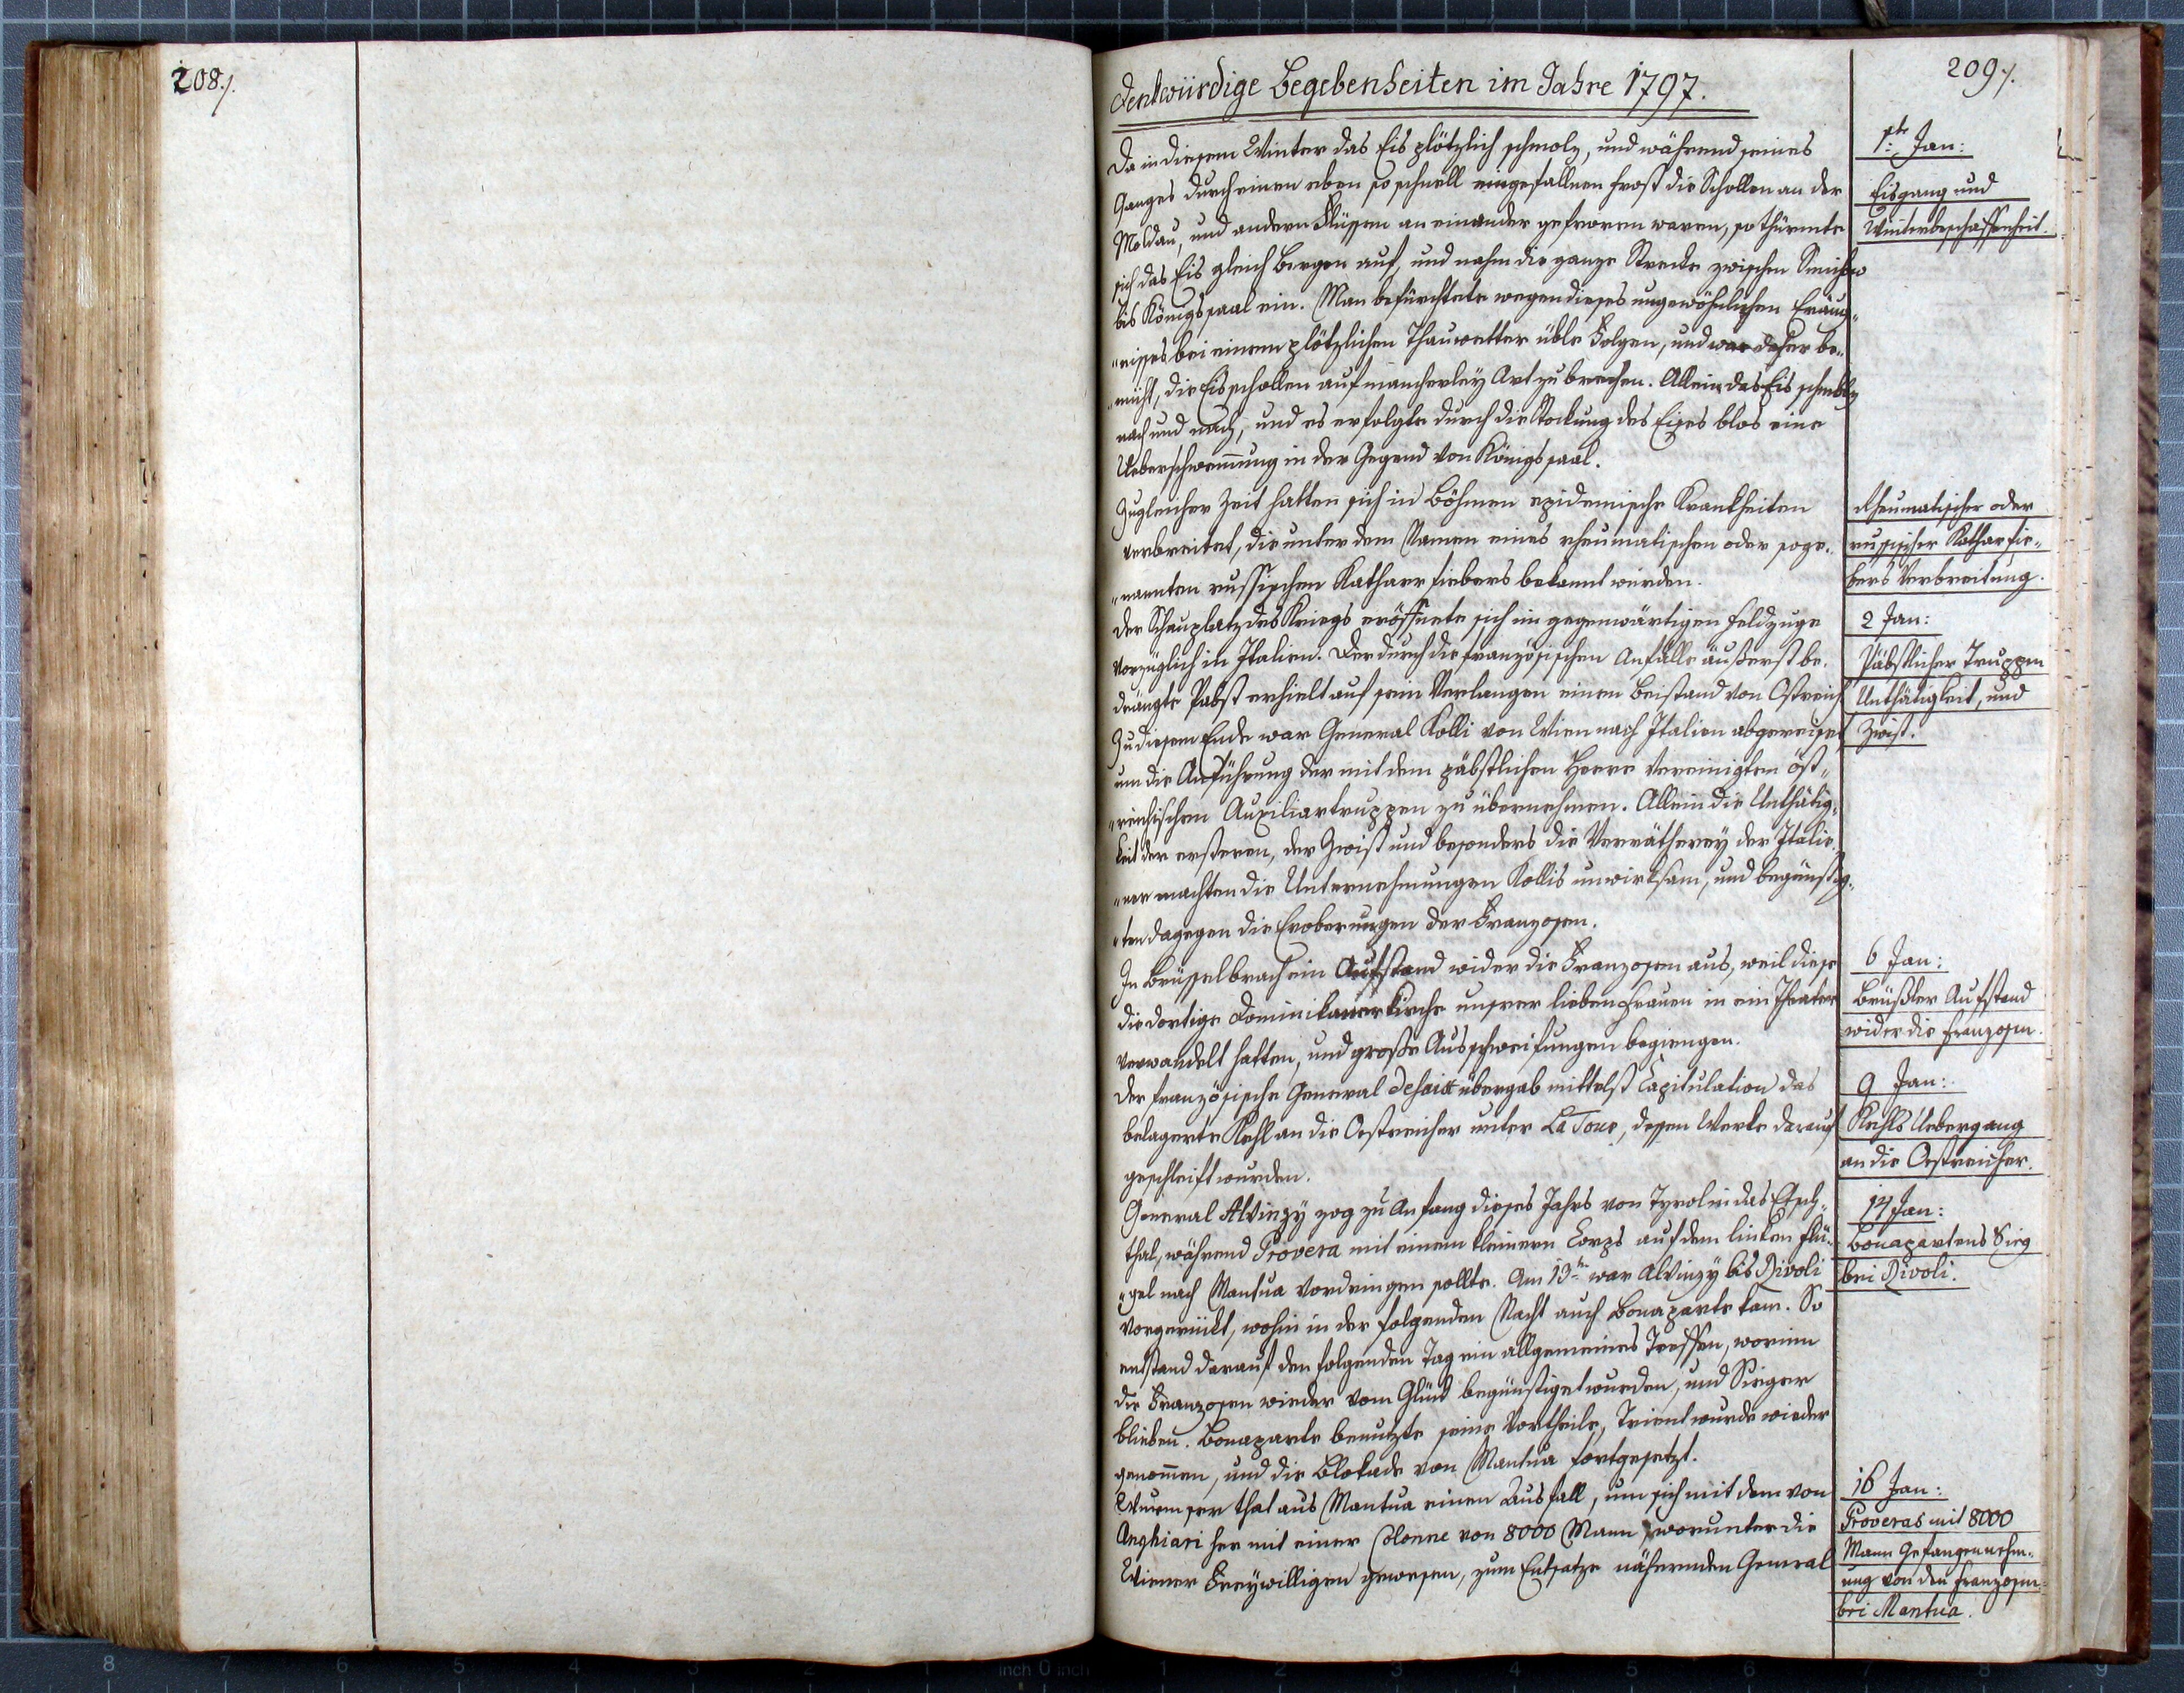 208./.
209./.
Denkwürdige Begebenheiten im Jahre 1797.
Da in diesem Winter das Eis plötzlich schmolz, und während seines
Ganges durch einen eben so schnell eingefallnen Frost die Schollen an der
Moldau, und andern Flüssen an einander gefroren waren, so thürmte
sich das Eis gleich Bergen auf, und nahm die ganze Strecke zwischen Smichow
bis Königssaal ein. Man befürchtete wegen dieses ungewöhnlichen Eräug„
„nisses bei einem plötzlichen Thauwetter üble Folgen, und war daher be„
„müht, die Eisschollen auf mancherley Art zu brechen. Allein das Eis schmolz
nach und nach, und es erfolgte durch die Stockung des Eises blos eine
Ueberschwem̅ung in der Gegend von Königssaal.
Zugleicher Zeit hatten sich in Böhmen epidemische Krankheiten
verbreitet, die unter dem Namen eines rheumatischen oder soge„
„nannten russischen Katharrfiebers bekannt wurden.
Der Schauplatz des Kriegs eröffnete sich im gegenwärtigen Feldzuge
vorzüglich in Italien. Der durch die französischen Anfälle äußerst be„
drängte Pabst erhielt auf sein Verlangen einen Beistand von Ostreich
Zu diesem Ende war General Kolli von Wien nach Italien abgereiset
um die Anführung der mit dem päbstlichen Heere vereinigten öst„
„reichischen Auxiliartruppen zu übernehmen. Allein die Unthätig„
keit der ersteren, der Zwist und besonders die Verrätherey der Italie„
„ner machten die Unternehmungen Kollis unwirksam, und begünstig„
„ten dagegen die Eroberungen der Franzosen.
In Brüssel brach ein Aufstand wider die Franzosen aus, weil diese
die dortige Dominikanerkirche unsrer lieben Frauen in ein Theater
verwandelt hatten, und große Ausschweifungen begiengen.
Der französische General Desaix übergab mittelst Capitulation das
belagerte Kehl an die Oestreicher unter La Tour, dessen Werke darauf
geschleift wurden.
General Alvinzy zog zu Anfang dieses Jahrs von Tyrol in das Etsch„
thal, während Provera mit einem kleinern Corps auf dem linken Flü„
„gel nach Mantua vordringen sollte. Am 13ten war Alvinzy bis Rivoli
vorgerückt, wohin in der folgenden Nacht auch Bonaparte kam. So
entstand darauf den folgenden Tag ein allgemeines Treffen, worinn
die Franzosen wieder vom Glück begünstiget wurden, und Sieger
blieben. Bonaparte benutzte seine Vortheile, Trient wurde wieder
genom̅en, und die Blokade von Mantua fortgesetzt.
Wurmser that aus Mantua einen Ausfall, um sich mit dem von
Anghiari her mit einer Colonne von 8000 Mann, worunter die
Wiener Freywilligen gewesen, zum Entsatze nähernden General
1te Jan:
Eisgang und
Winterbeschaffenheit.
Rheumatischer oder
russischer Katharfie„
bers Verbreitung.
2 Jan:
Päbstlicher Truppen
Unthätigkeit, und
Zwist.
6 Jan:
Brüßler Aufstand
wider die Franzosen.
9 Jan:
Kehls Uebergang
an die Oestreicher.
14 Jan:
Bonapartens Sieg
bei Rivoli.
16 Jan:
Proveras mit 8000
Mann Gefangennehm„
ung von den Franzosen
bei Mantua.